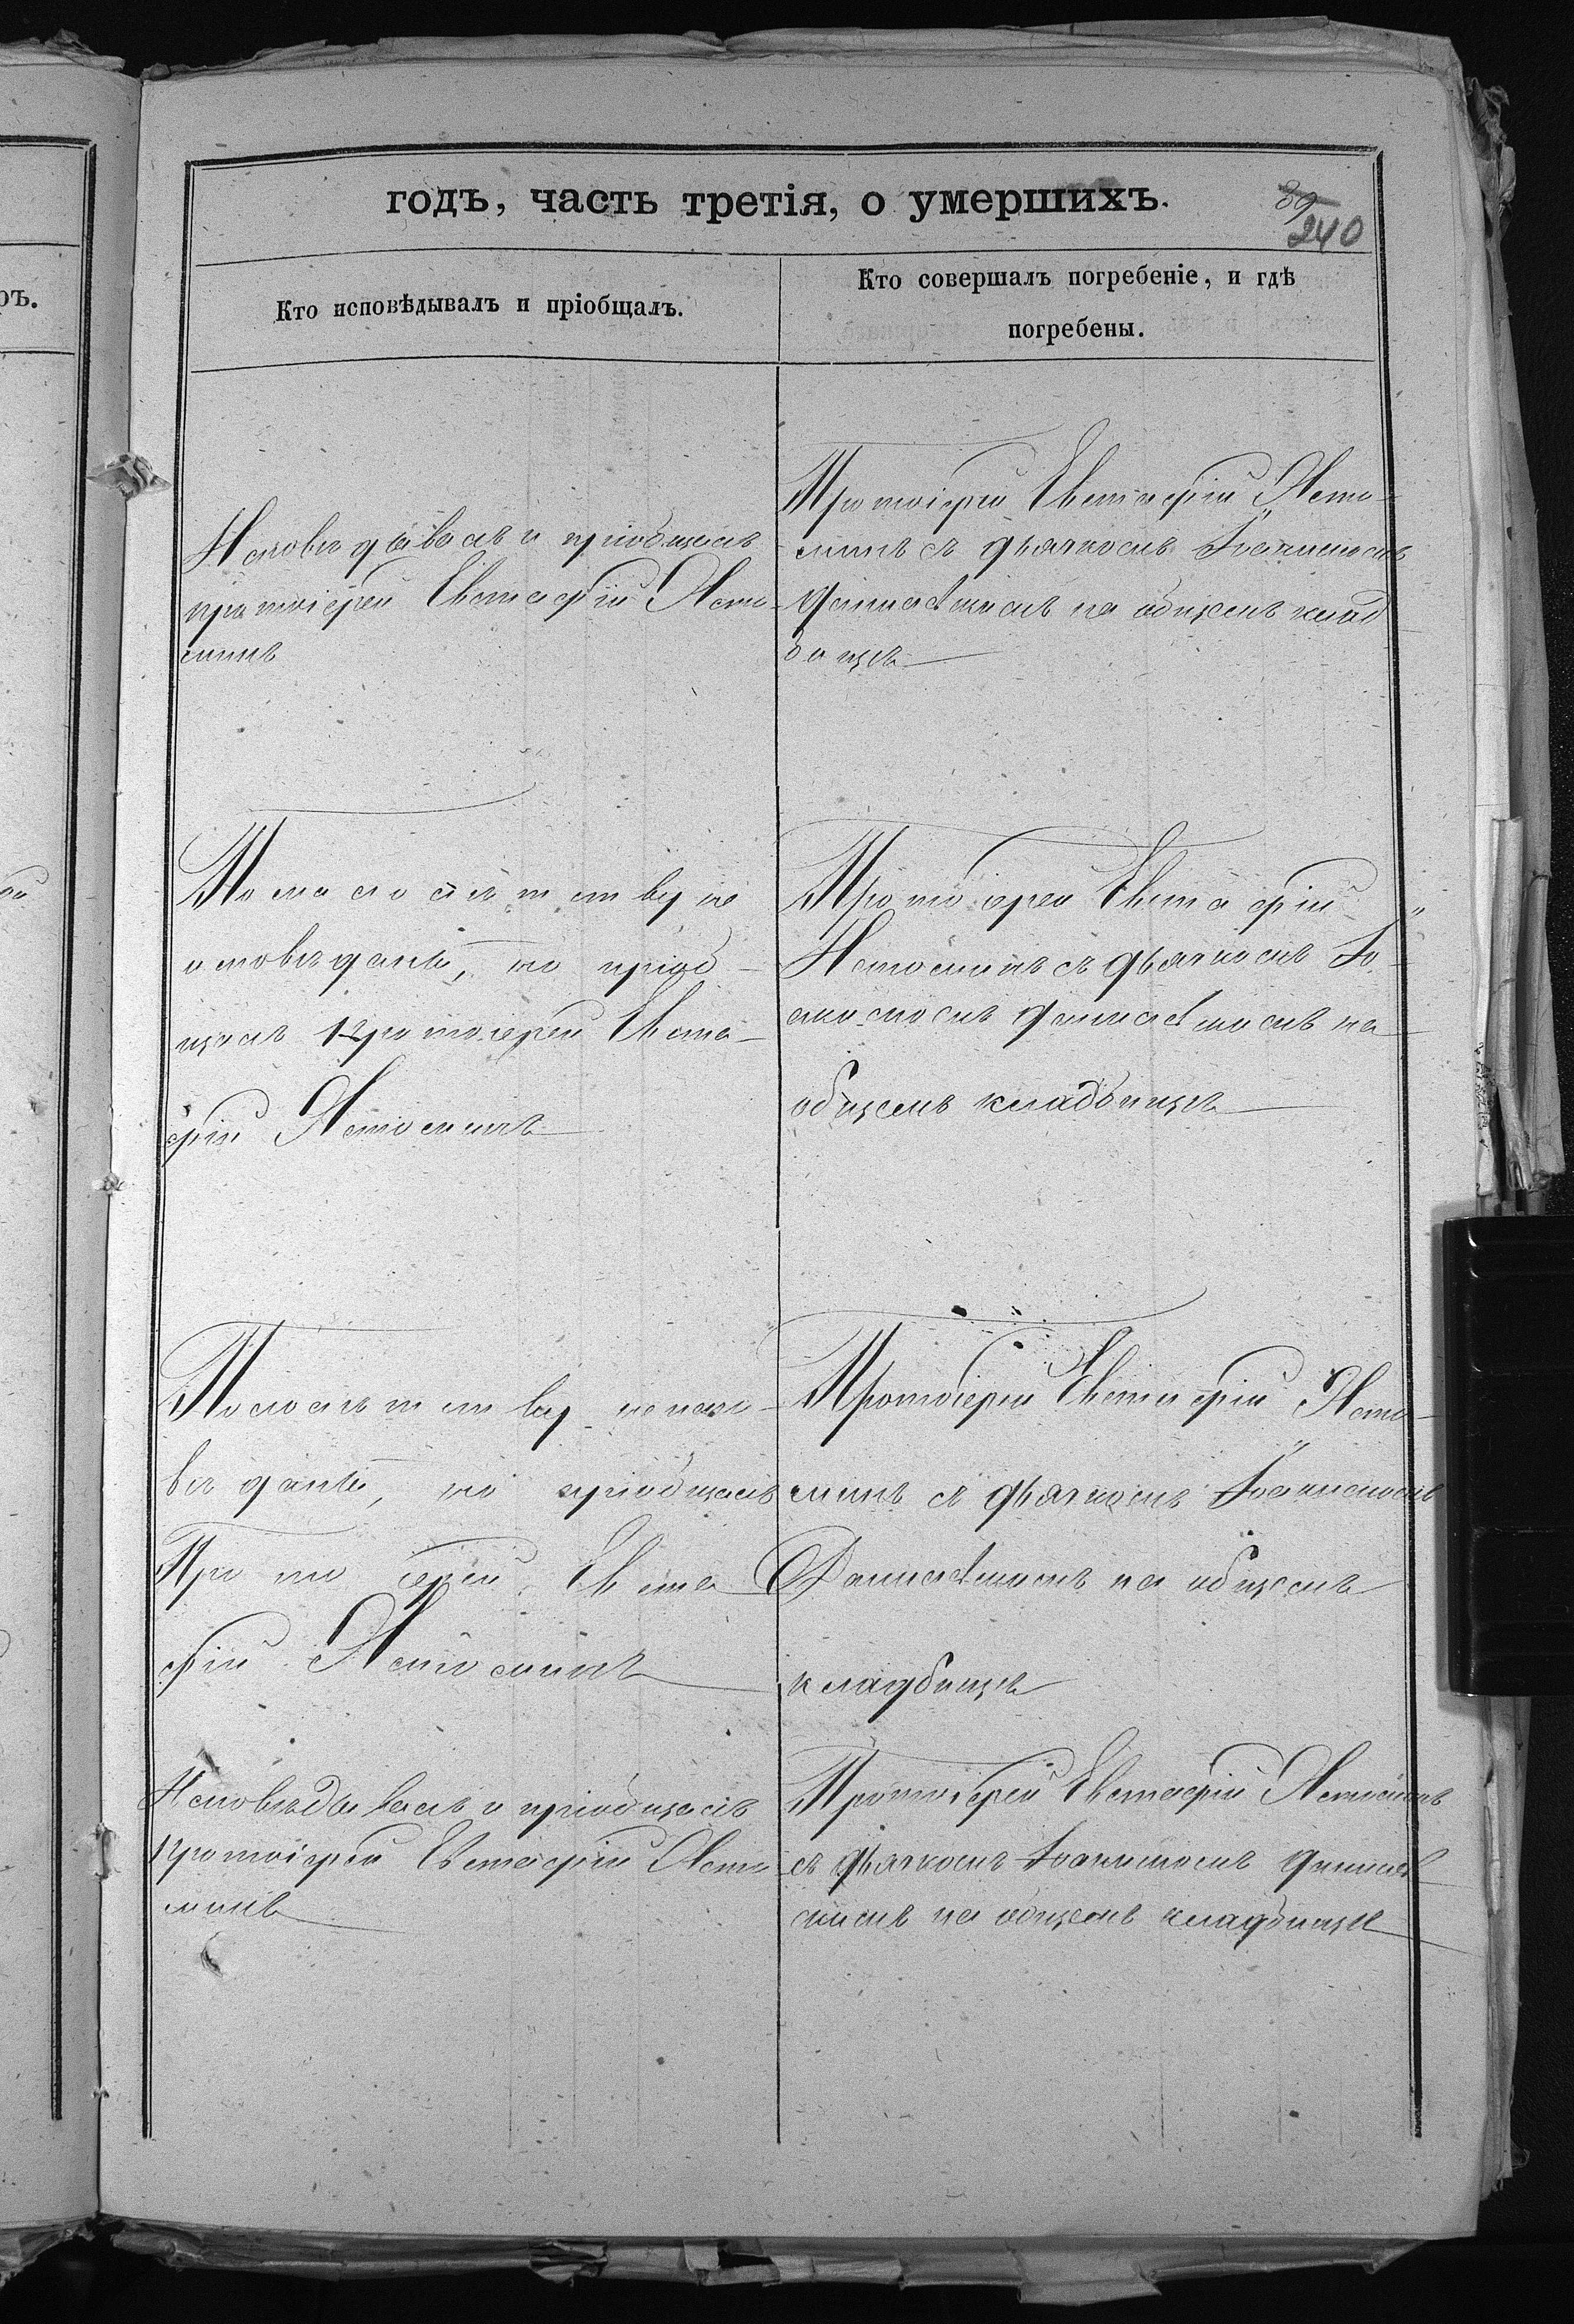 годъ, часть третія, о умершихъ.
240
Кто исповѣдывалъ и пріобщалъ.
Кто совершалъ погребеніе, и гдѣ
погребены.
Исповѣдывалъ и пріобщалъ
протоіерей Евстафій Исто-
минъ
Протоіерей Евстафій Исто-
минъ съ дьячкомъ Іоанномъ
на общемъ клад
бищѣ
По малолѣтству не
исповѣданъ, но пріоб-
щалъ Протоіерей Евста-
фій Истоминъ
Протоіерей Евстафій
Истоминъ съ дьячкомъ Іо-
на
общемъ кладбищѣ
По малолѣтству не испо-
вѣданъ, но пріобщалъ
Протоіерей Евста
фій Истоминъ
Протоіерей Евстафій Исто-
минъ съ дьячкомъ Іоанномъ
на общемъ
кладбищѣ
Исповѣдывалъ и пріобщалъ
Протоіерей Евстафій Исто
минъ
Протоіерей Евстафій Истоминъ
съ дьячкомъ Іоанномъ
на общемъ кладбищѣ